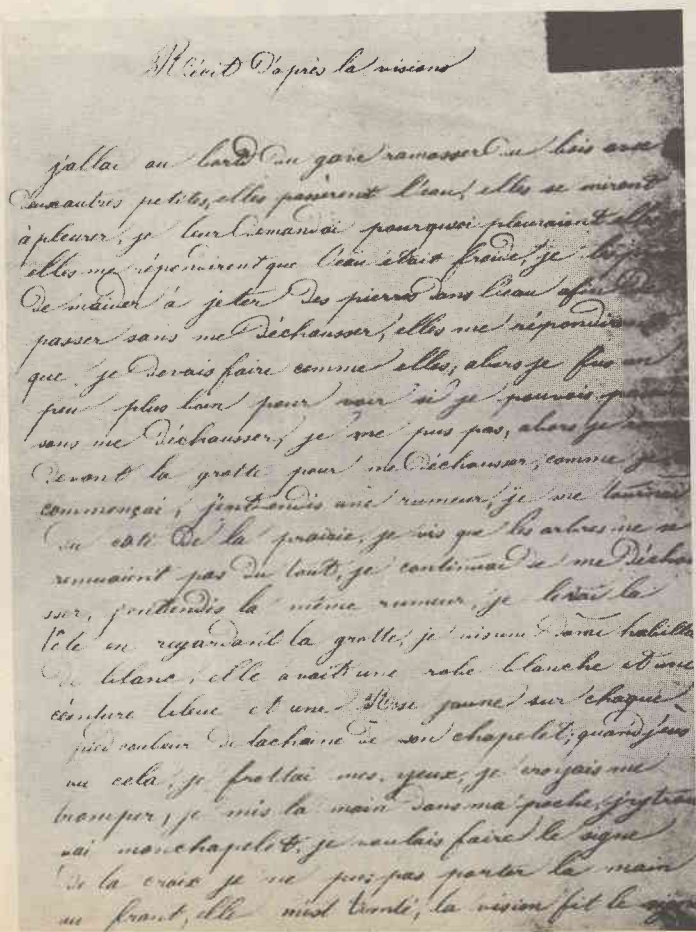 Récit D'après la visions
j'allai au bord du gave ramasser du bois avec
deux autres petites, elles passèrent l'eau, elles se mirent
à pleurer, je leur demandai pourquoi pleuraient elles
elles me répondirent que l'eau était froide, je les
de maider à jeter des pierres dans l'eau afin de
passer sans me déchausser, elles me répondirent
que je devais faire comme elles, alors je fus un
peu plus loin pour voir si je pouvais
sans me déchausser, je me pus pas, alors je
devant la grotte pour me déchausser, comme je
commençai, j'entendis une rumeur, je me tournai
du coté de la prairie, je vis que les arbres ne se
remuaient pas du tout, je continuai de me décha
sser, j'entendis la même rumeur, je levai la
tête en regardant la grotte, je vis une dame habillée
de blanc, elle avait une robe blanche et une
ceinture bleue et une Rose jaune sur chaque
pied couleur de la chaine de son chapelet, quand j'eus
vu cela, je frottai mes yeux, je croyais me
tromper, je mis la main dans ma poche, j'y trou
vai mon chapelet, je voulais faire le signe
de la croix je ne pus pas porter la main
au front, elle m'est tombé, la vision fit le signe